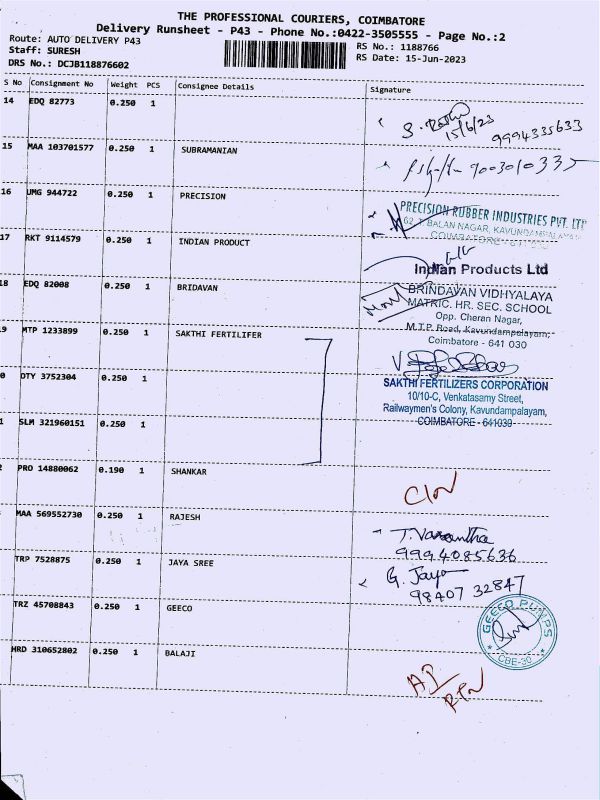 THE PROFESSIONAL COURIERS, COIMBATORE
Delivery Runsheet - P43 - Phone No.:0422-3505555 - Page No.:2
Route: AUTO DELIVERY P43
RS No.: 1188766
Staff: SURESH
RS Date: 15-Jun-2023
DRS No.: DCJB118876602
S No Consignment No Weight PCS Consignee Details Signature
14 EDQ 82773 0.250 1
15/6/23 9994335633
15 MAA 103701577 0.250 1 SUBRAMANIAN
9003010335
16 UMG 944722 0.250 1 PRECISION
PRECISION RUBBER INDUSTRIES PVT. LTD
BALAN NAGAR, KAVUNDAMPALAYAM
COIMBATORE
17 RKT 9114579 0.250 1 INDIAN PRODUCT
Indian Products Ltd
8 EDQ 82008 0.250 1 BRIDAVAN
BRINDAVAN VIDHYALAYA
MATRIC. HR. SEC. SCHOOL
Opp. Cheran Nagar,
M.T.P. Road, Kavundampalayam,
Coimbatore - 641 030
9 MTP 1233899 0.250 1 SAKTHI FERTILIFER
SAKTHI FERTILIZERS CORPORATION
10/10-C, Venkatasamy Street,
Railwaymen's Colony, Kavundampalayam,
COIMBATORE - 641030
0 DTY 3752304 0.250 1
1 SLM 321960151 0.250 1
PRO 14880062 0.190 1 SHANKAR
MAA 569552730 0.250 1 RAJESH
T. Vasantha
9994085636
TRP 7528875 0.250 1 JAYA SREE
G. Jaya
98407 32847
TRZ 45708843 0.250 1 GEECO
GEECO PUMPS
CBE-30
HRD 310652802 0.250 1 BALAJI